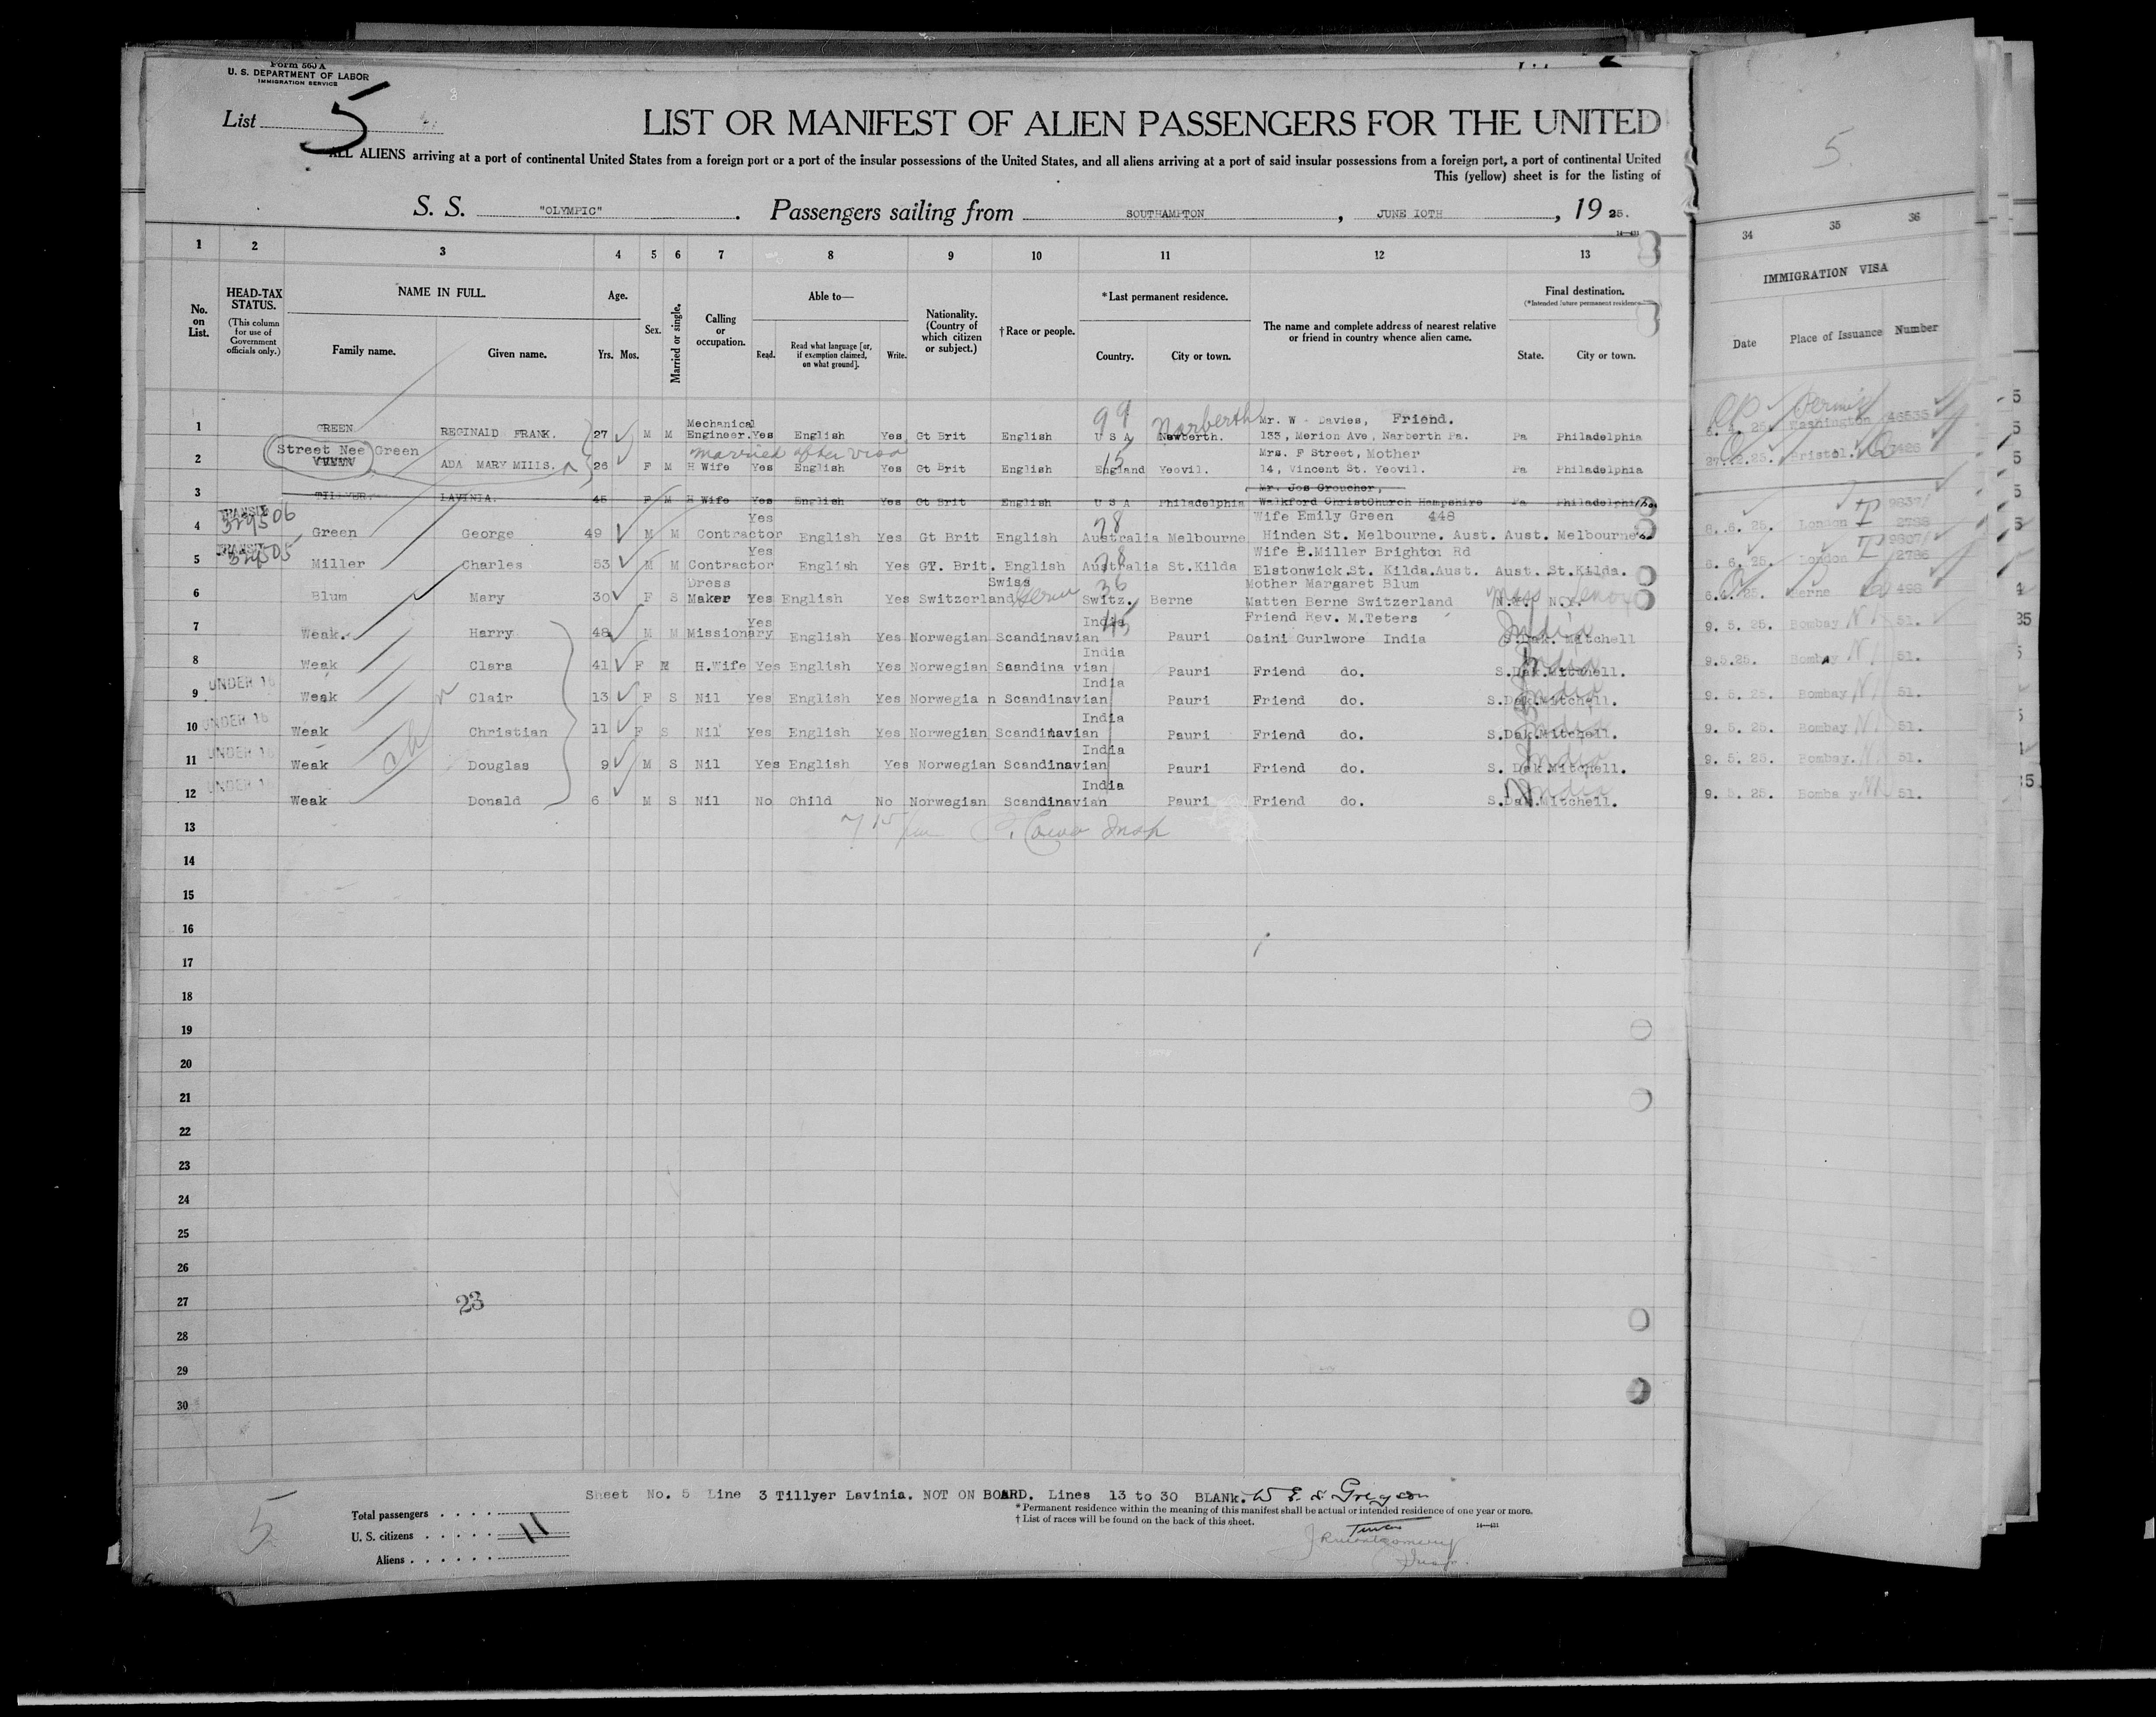 Form 560 A
U. S. DEPARTMENT OF LABOR
IMMIGRATION SERVICE
List 5
LIST OR MANIFEST OF ALIEN PASSENGERS FOR THE UNITED
ALL ALIENS arriving at a port of continental United States from a foreign port or a port of the insular possessions of the United States, and all aliens arriving at a port of said insular possessions from a foreign port, a port of continental United
This (yellow) sheet is for the listing of
S. S. "OLYMPIC". Passengers sailing from SOUTHAMPTON, JUNE 10TH, 1925.
1 2 3 4 5 6 7 8 9 10 11 12 13
No. on List.
HEAD-TAX STATUS.
(This column for use of Government officials only.)
NAME IN FULL.
Family name. Given name.
Age.
Yrs. Mos.
Sex.
Married or single.
Calling or occupation.
Able to—
Read. Read what language [or, if exemption claimed, on what ground]. Write.
Nationality. (Country of which citizen or subject.)
†Race or people.
*Last permanent residence.
Country. City or town.
The name and complete address of nearest relative or friend in country whence alien came.
Final destination.
(*Intended future permanent residence)
State. City or town.
34 35 36
IMMIGRATION VISA
Date Place of Issuance Number
1 GREEN REGINALD FRANK. 27 M M Mechanical Engineer. Yes English Yes Gt Brit English 99 U S A Newberth. Narberth Mr. W Davies, Friend. 133, Merion Ave, Narberth Pa. Pa Philadelphia Washington 46535
2 Street Nee Green ADA MARY MILLS. 26 F M H Wife married after visa Yes English Yes Gt Brit English 15 England Yeovil. Mrs. F Street, Mother 14, Vincent St. Yeovil. Pa Philadelphia Bristol.
3 TILLYER. LAVINIA. 45 F M H Wife Yes English Yes Gt Brit English U S A Philadelphia Mr. Jos Groucher, Walkford ChristChurch Hampshire Pa Philadelphia
4 TRANSIT 329506 Green George 49 M M Contractor Yes English Yes Gt Brit English 28 Australia Melbourne Wife Emily Green 448 Hinden St. Melbourne. Aust. Aust. Melbourne 6. 6. 25. London 2788
5 TRANSIT 329505 Miller Charles 53 M M Contractor Yes English Yes GT. Brit. English 28 Australia St.Kilda Wife B.Miller Brighton Rd Elstonwick.St. Kilda.Aust. Aust. St.Kilda. 6. 6. 25. London 2786
6 Blum Mary 30 F S Dress Maker Yes English Yes Switzerland Swiss 36 Switz. Berne Mother Margaret Blum Matten Berne Switzerland N.Y. N.Y. Mass Lenox Berne 498
7 Weak. Harry 48 M M Missionary Yes English Yes Norwegian Scandinavian India 45 Pauri Friend Rev. M.Teters Gaini Gurlwore India S.Dak. Mitchell India 9. 5. 25. Bombay 51.
8 Weak Clara 41 F M H.Wife Yes English Yes Norwegian Scandina vian India Pauri Friend do. S.Dak.Mitchell. India 9.5.25. Bombay 51.
9 UNDER 16 Weak Clair 13 F S Nil Yes English Yes Norwegia n Scandinavian India Pauri Friend do. S.Dak.Mitchell. India 9. 5. 25. Bombay 51.
10 UNDER 16 Weak Christian 11 F S Nil Yes English Yes Norwegian Scandinavian India Pauri Friend do. S.Dak.Mitchell. India 9. 5. 25. Bombay 51.
11 UNDER 16 Weak Douglas 9 M S Nil Yes English Yes Norwegian Scandinavian India Pauri Friend do. S. Dak.Mitchell. India 9. 5. 25. Bombay. 51.
12 UNDER 16 Weak Donald 6 M S Nil No Child No Norwegian Scandinavian India Pauri Friend do. S.Dak.Mitchell. India 9. 5. 25. Bomba y 51.
13
14
15
16
17
18
19
20
21
22
23
24
25
26
27
23
28
29
30
Sheet No. 5 Line 3 Tillyer Lavinia. NOT ON BOARD. Lines 13 to 30 BLANk.
*Permanent residence within the meaning of this manifest shall be actual or intended residence of one year or more.
†List of races will be found on the back of this sheet.
14—431
5
Total passengers
U. S. citizens 11
Aliens